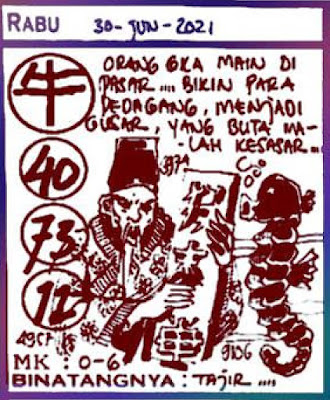 RABU 30-JUN-2021
ORANG GILA MAIN DI
PASAR.... BIKIN PARA
PEDAGANG, MENJADI
GUSAR, YANG BUTA MA-
LAH KESASAR...
牛
40
73
12
MK : 0-6
BINATANGNYA : TAJIR ....